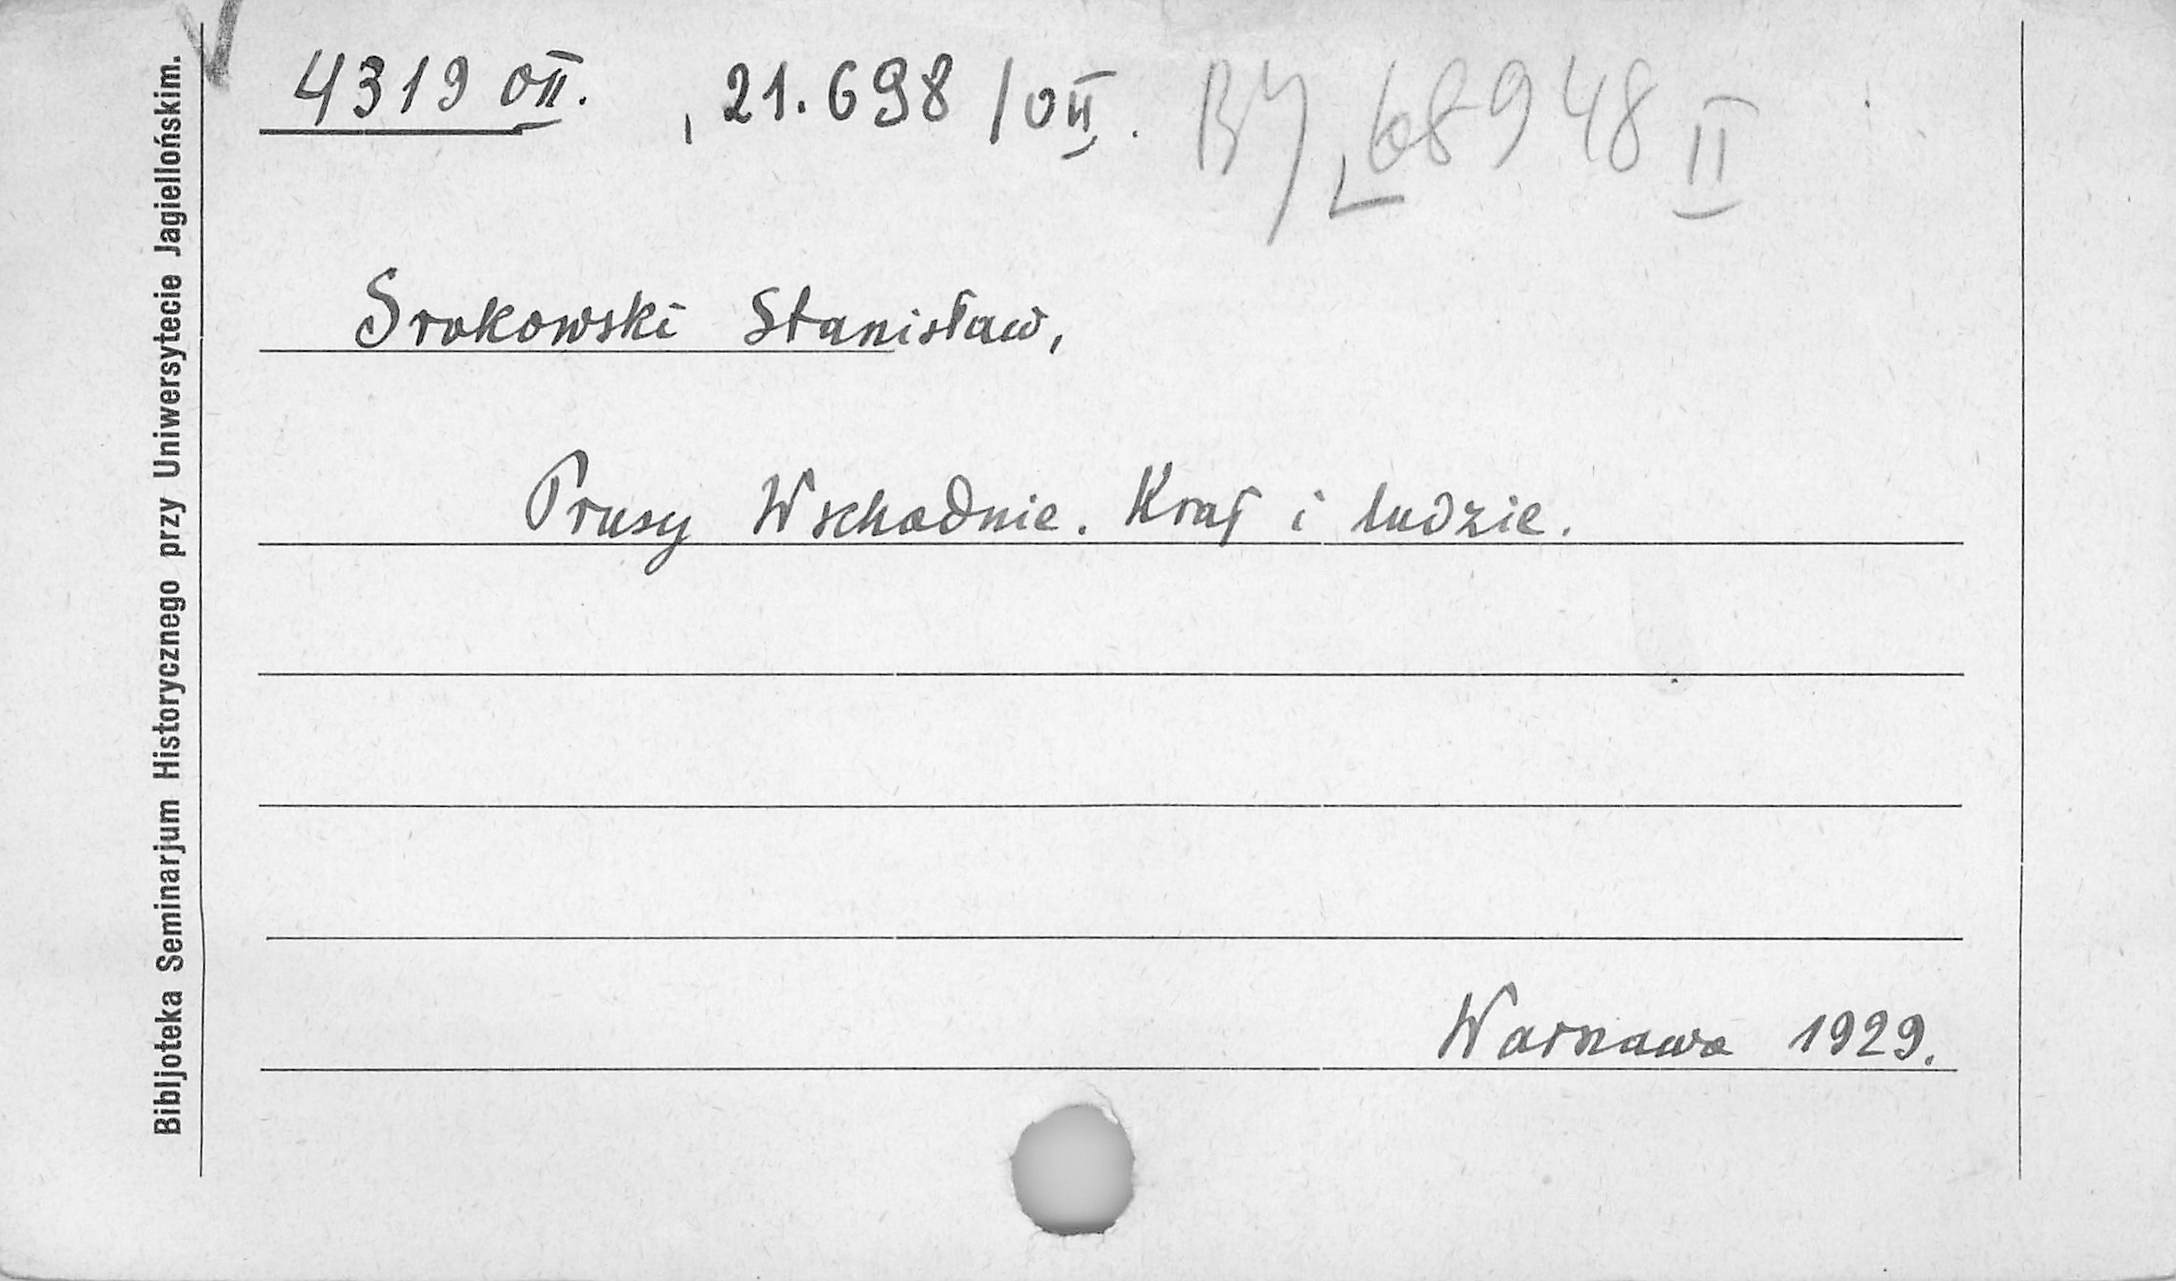 4319 OII. , 21.698 / OII. BJ 68948 II
Srokowski Stanisław,
Prusy Wschodnie. Kraj i ludzie.
Warszawa 1929.
Bibljoteka Seminarjum Historycznego przy Uniwersytecie Jagiellońskim.